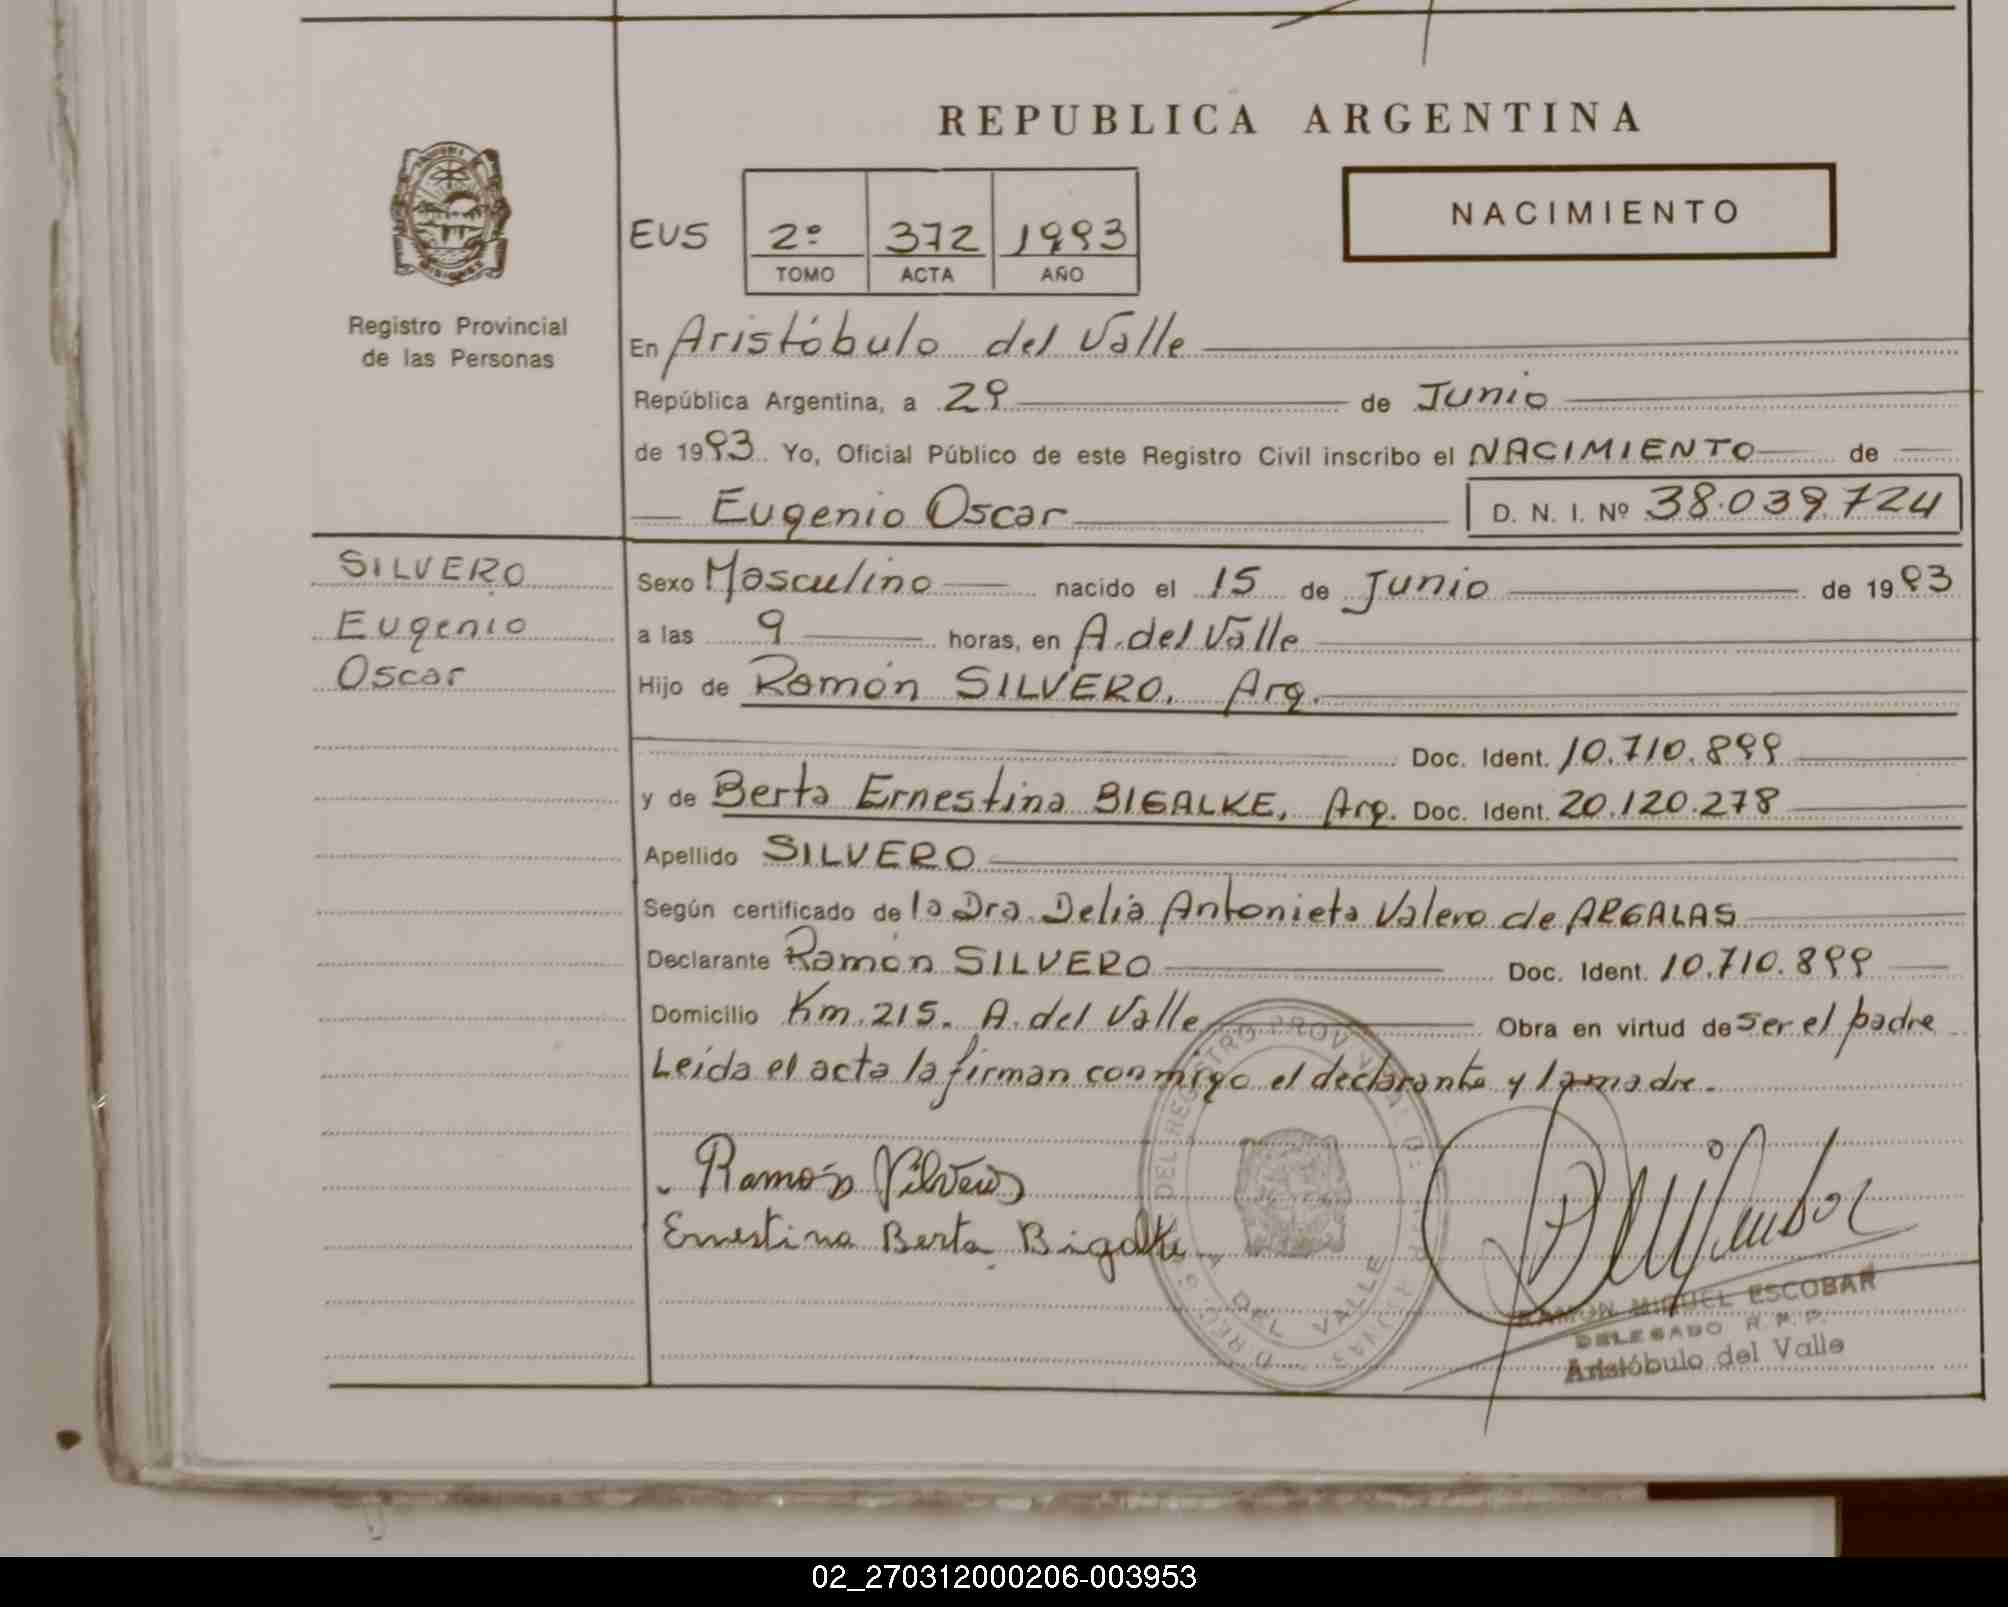 REPUBLICA ARGENTINA
NACIMIENTO
EUS 2º 372 1993
TOMO ACTA AÑO
Registro Provincial
de las Personas
En Aristóbulo del Valle
República Argentina, a 29 de Junio
de 1993. Yo, Oficial Público de este Registro Civil inscribo el NACIMIENTO de
Eugenio Oscar D. N. I. Nº 38.039.724
SILVERO
Eugenio
Oscar
Sexo Masculino nacido el 15 de Junio de 1993
a las 9 horas, en A. del Valle
Hijo de Ramón SILVERO. Arg.
Doc. Ident. 10.710.899
y de Berta Ernestina BIGALKE, Arg. Doc. Ident. 20.120.278
Apellido SILVERO
Según certificado de la Dra. Delia Antonieta Valero de ARGALAS
Declarante Ramón SILVERO Doc. Ident. 10.710.899
Domicilio Km. 215. A. del Valle Obra en virtud de ser el padre
Leída el acta la firman conmigo el declarante y la madre.
Ramón Silvero
Ernestina Berta Bigalke
DEL VALLE
RAMON MIGUEL ESCOBAR
DELEGADO R. P. P.
Aristóbulo del Valle
02_270312000206-003953